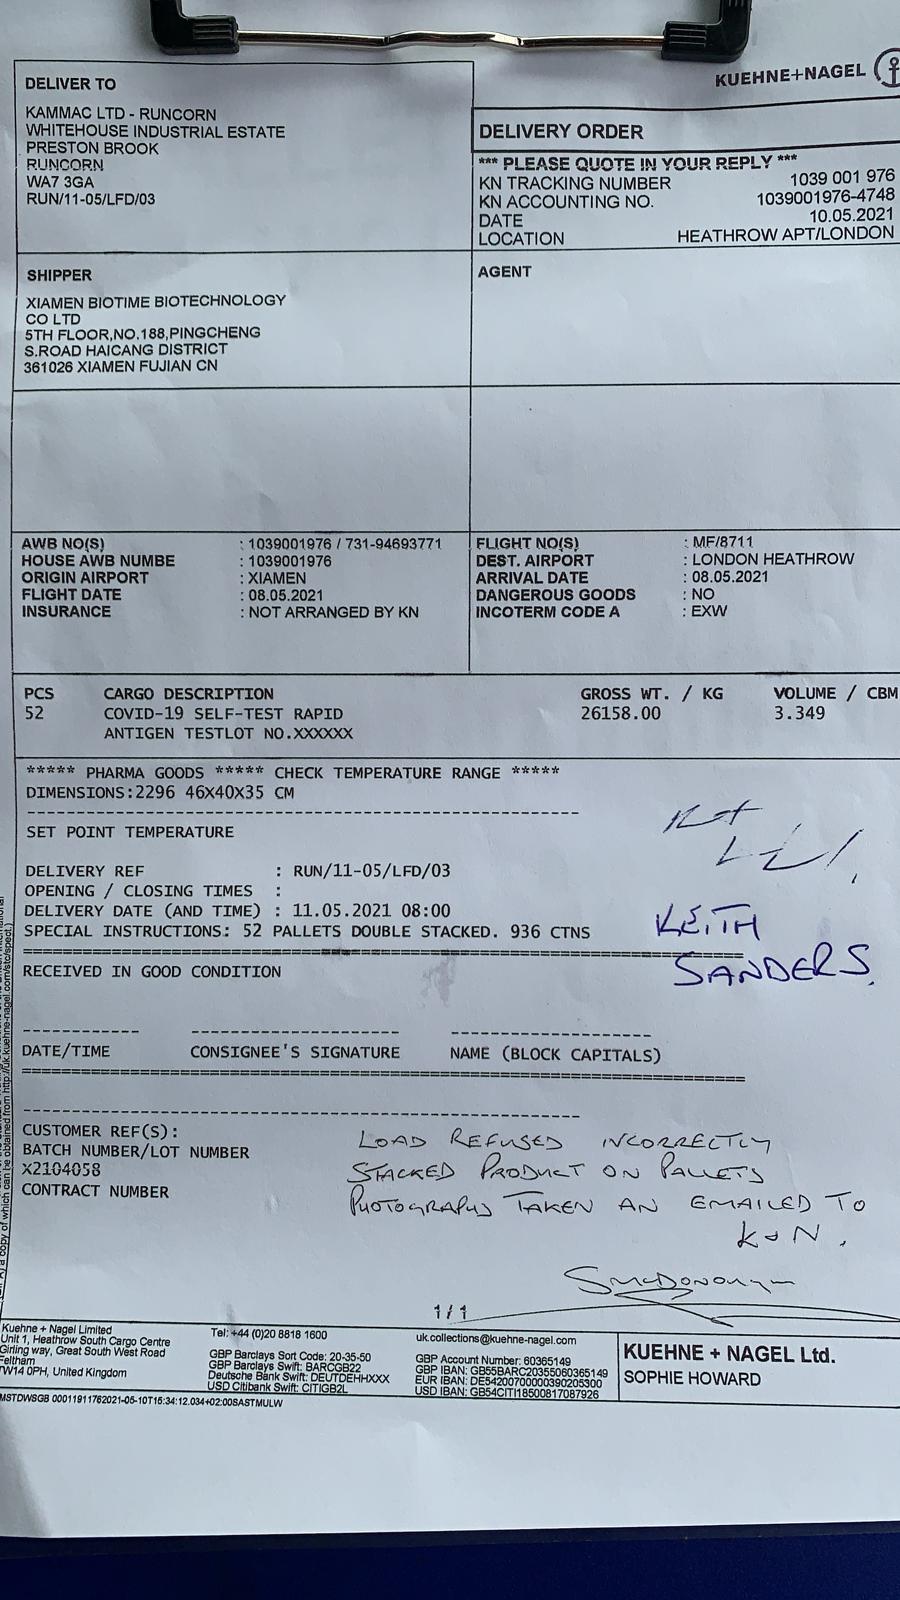 KUEHNE+NAGEL
DELIVER TO
KAMMAC LTD - RUNCORN
WHITEHOUSE INDUSTRIAL ESTATE
PRESTON BROOK
RUNCORN
WA7 3GA
RUN/11-05/LFD/03
DELIVERY ORDER
*** PLEASE QUOTE IN YOUR REPLY ***
KN TRACKING NUMBER 1039 001 976
KN ACCOUNTING NO. 1039001976-4748
DATE 10.05.2021
LOCATION HEATHROW APT/LONDON
SHIPPER
XIAMEN BIOTIME BIOTECHNOLOGY
CO LTD
5TH FLOOR,NO.188,PINGCHENG
S.ROAD HAICANG DISTRICT
361026 XIAMEN FUJIAN CN
AGENT
AWB NO(S) : 1039001976 / 731-94693771
HOUSE AWB NUMBE : 1039001976
ORIGIN AIRPORT : XIAMEN
FLIGHT DATE : 08.05.2021
INSURANCE : NOT ARRANGED BY KN
FLIGHT NO(S) : MF/8711
DEST. AIRPORT : LONDON HEATHROW
ARRIVAL DATE : 08.05.2021
DANGEROUS GOODS : NO
INCOTERM CODE A : EXW
PCS CARGO DESCRIPTION GROSS WT. / KG VOLUME / CBM
52 COVID-19 SELF-TEST RAPID 26158.00 3.349
ANTIGEN TESTLOT NO.XXXXXX
***** PHARMA GOODS ***** CHECK TEMPERATURE RANGE *****
DIMENSIONS:2296 46X40X35 CM
SET POINT TEMPERATURE
DELIVERY REF : RUN/11-05/LFD/03
OPENING / CLOSING TIMES :
DELIVERY DATE (AND TIME) : 11.05.2021 08:00
SPECIAL INSTRUCTIONS: 52 PALLETS DOUBLE STACKED. 936 CTNS
KEITH
SANDERS.
RECEIVED IN GOOD CONDITION
DATE/TIME CONSIGNEE'S SIGNATURE NAME (BLOCK CAPITALS)
CUSTOMER REF(S):
BATCH NUMBER/LOT NUMBER
X2104058
CONTRACT NUMBER
LOAD REFUSED INCORRECTLY
STACKED PRODUCT ON PALLETS
PHOTOGRAPHS TAKEN AN EMAILED TO
K&N.
SMcDonough
1/1
Kuehne + Nagel Limited
Unit 1, Heathrow South Cargo Centre
Girling way, Great South West Road
Feltham
TW14 0PH, United Kingdom
Tel: +44 (0)20 8818 1600
GBP Barclays Sort Code: 20-35-50
GBP Barclays Swift: BARCGB22
Deutsche Bank Swift: DEUTDEHHXXX
USD Citibank Swift: CITIGB2L
uk.collections@kuehne-nagel.com
GBP Account Number: 60365149
GBP IBAN: GB55BARC20355060365149
EUR IBAN: DE54200700000390205300
USD IBAN: GB54CITI18500817087926
KUEHNE + NAGEL Ltd.
SOPHIE HOWARD
MSTDWSGB 00011911762021-05-10T15:34:12.034+02:00SASTMULW